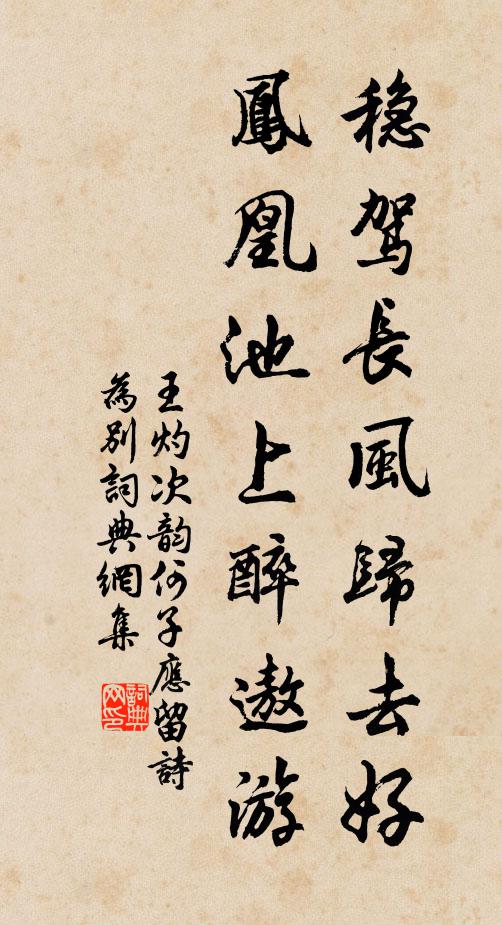 稳驾長風歸去好
鳳凰池上醉遨游
王灼次韵何子應留詩
為别詞典網集
詞典网印